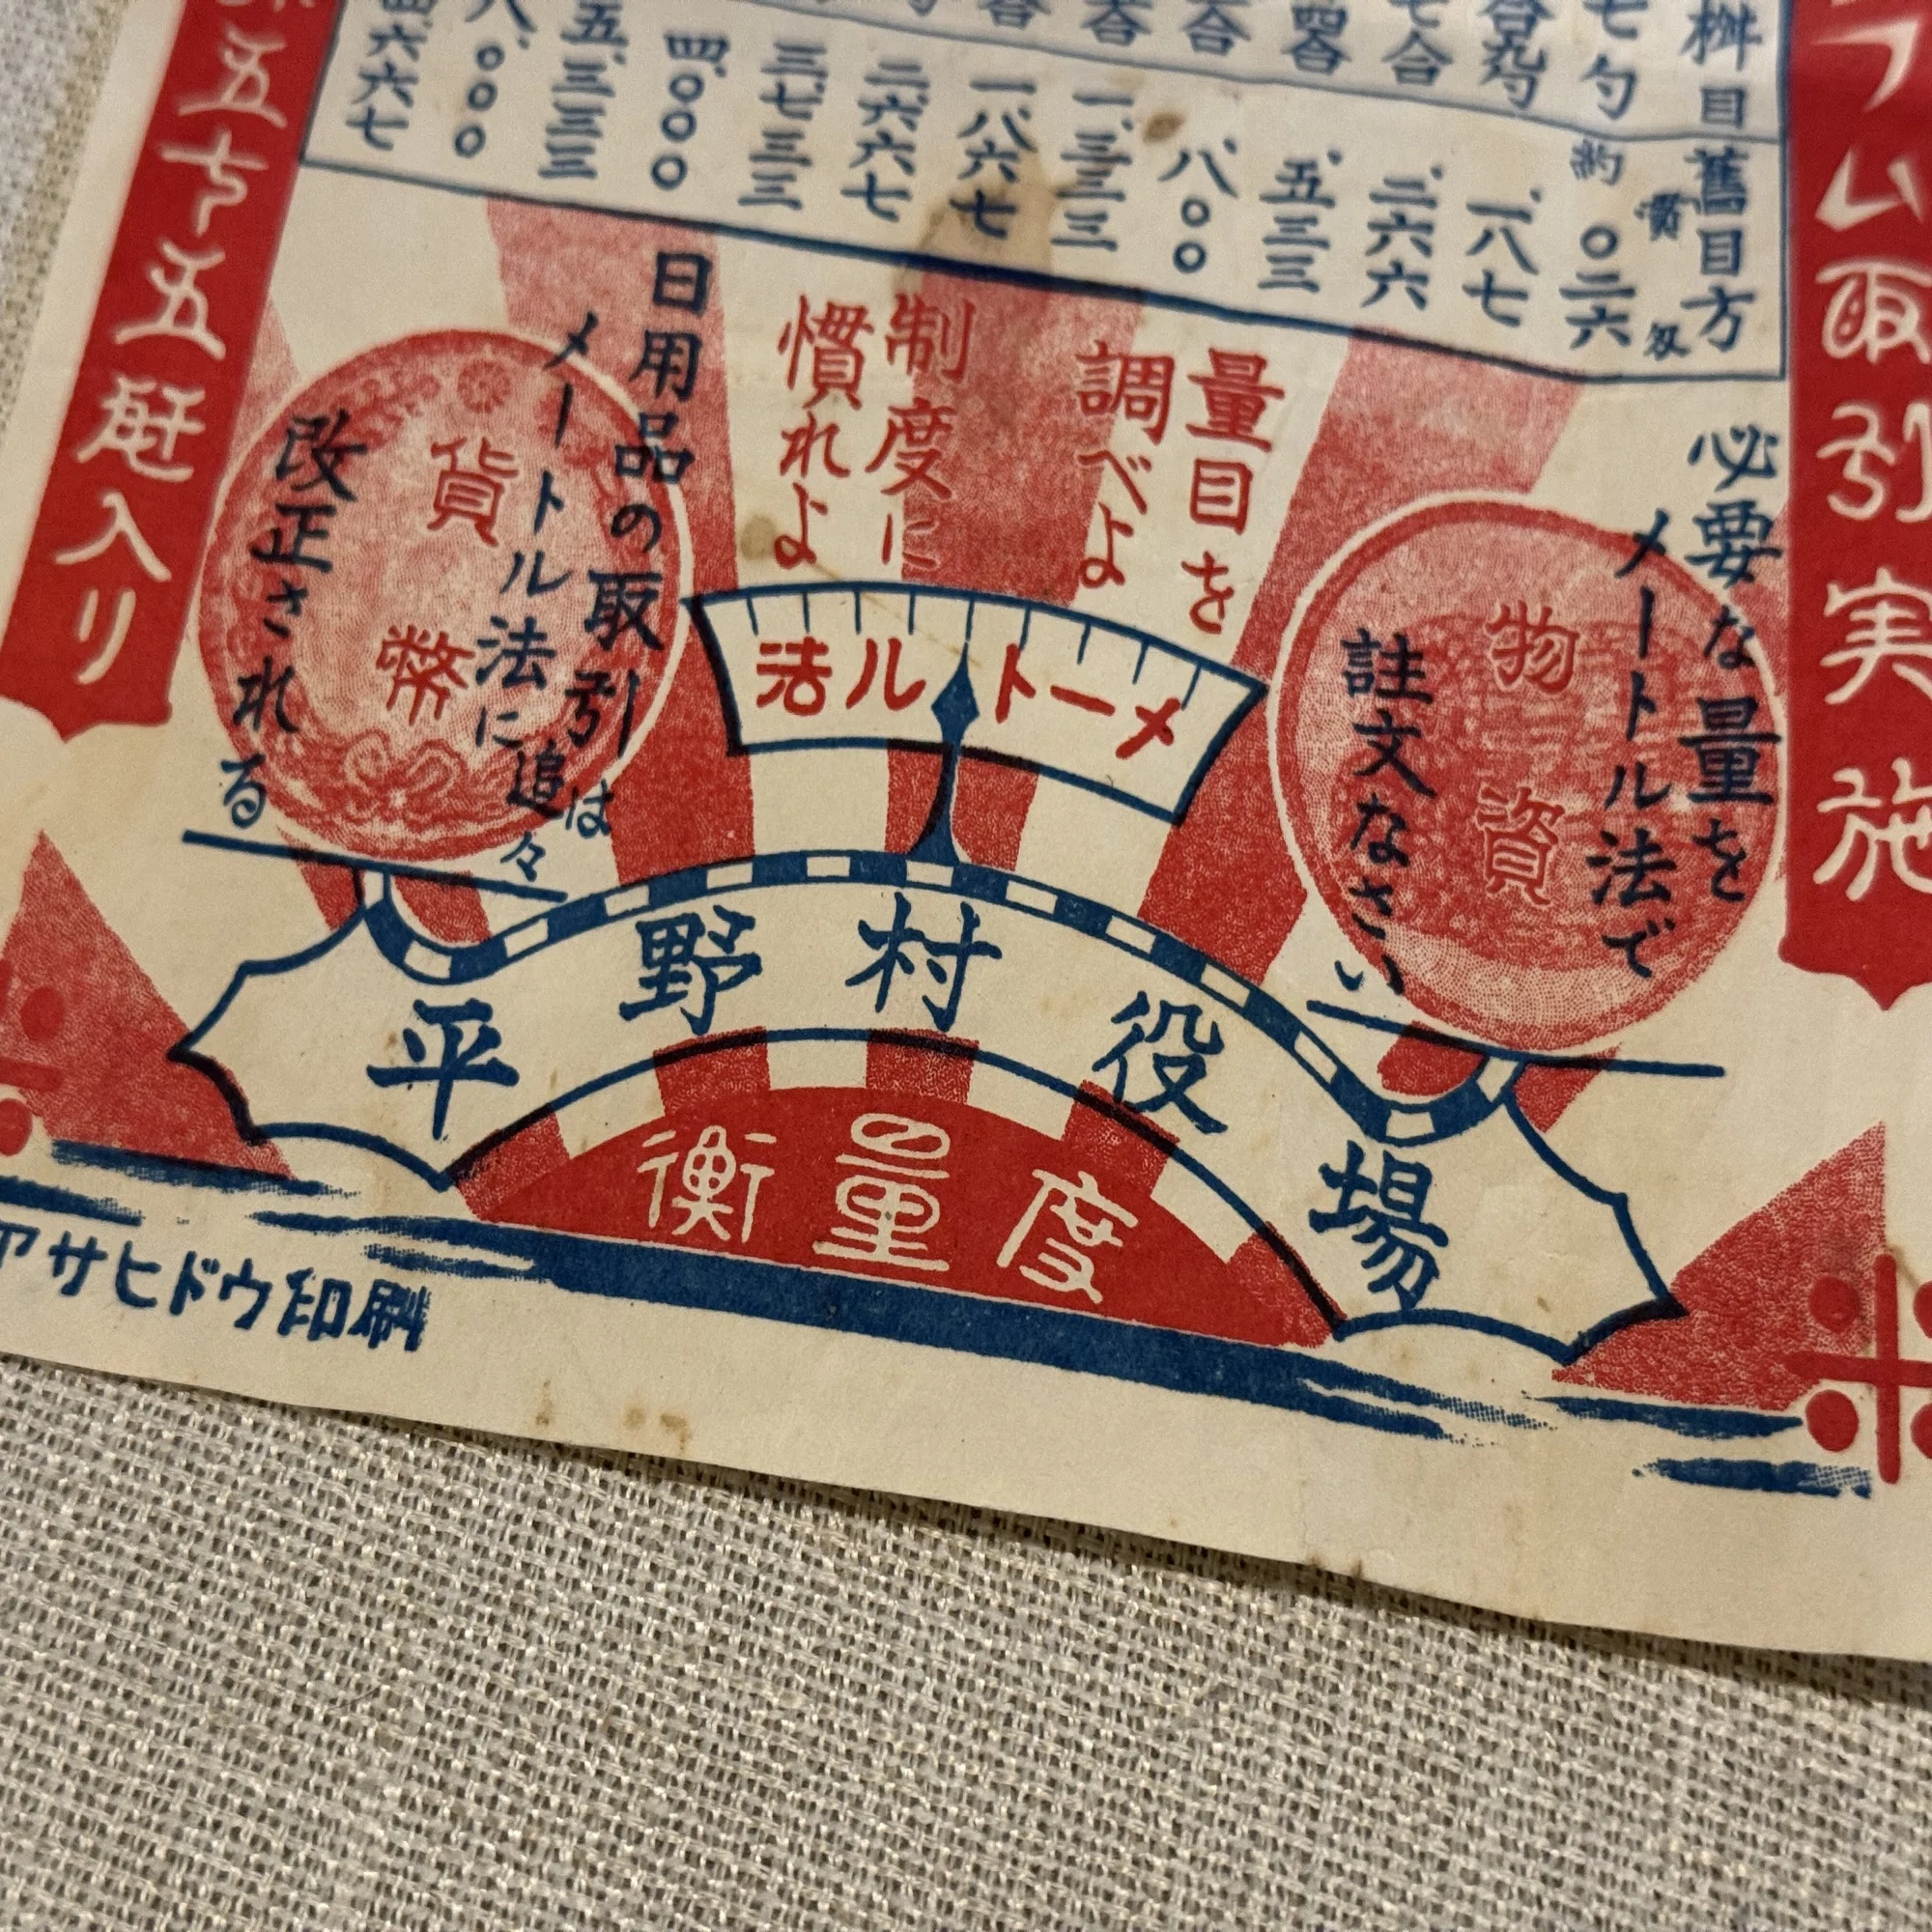 ラム取引実施
桝目
七勺
七合
四合
舊目方
貫
匁
約〇二六
、一八七
、二六六
、五三三
、八〇〇
一、三三三
一、八六七
二、六六七
三、七三三
四、〇〇〇
五、三三三
八、〇〇〇
四六六七
五十五瓩入り
必要な量を
メートル法で
註文なさい
物資
量目を
調べよ
制度に
慣れよ
日用品の取引は
メートル法に追々
改正される
貨幣
メートル法
平野村役場
度量衡
アサヒドウ印刷